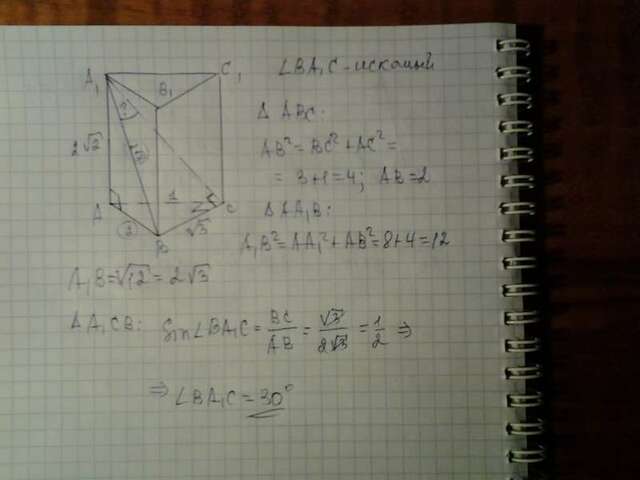 A₁ C₁
B₁
?
2√2
√12
A 1 C
2 √3
B
∠BA₁C - искомый
Δ ABC:
AB² = BC² + AC² =
= 3+1=4; AB=2
Δ AA₁B:
A₁B² = AA₁² + AB² = 8+4=12
A₁B = √12 = 2√3
Δ A₁CB: Sin∠BA₁C = BC/AB = √3/2√3 = 1/2 ⇒
⇒ ∠BA₁C = 30°